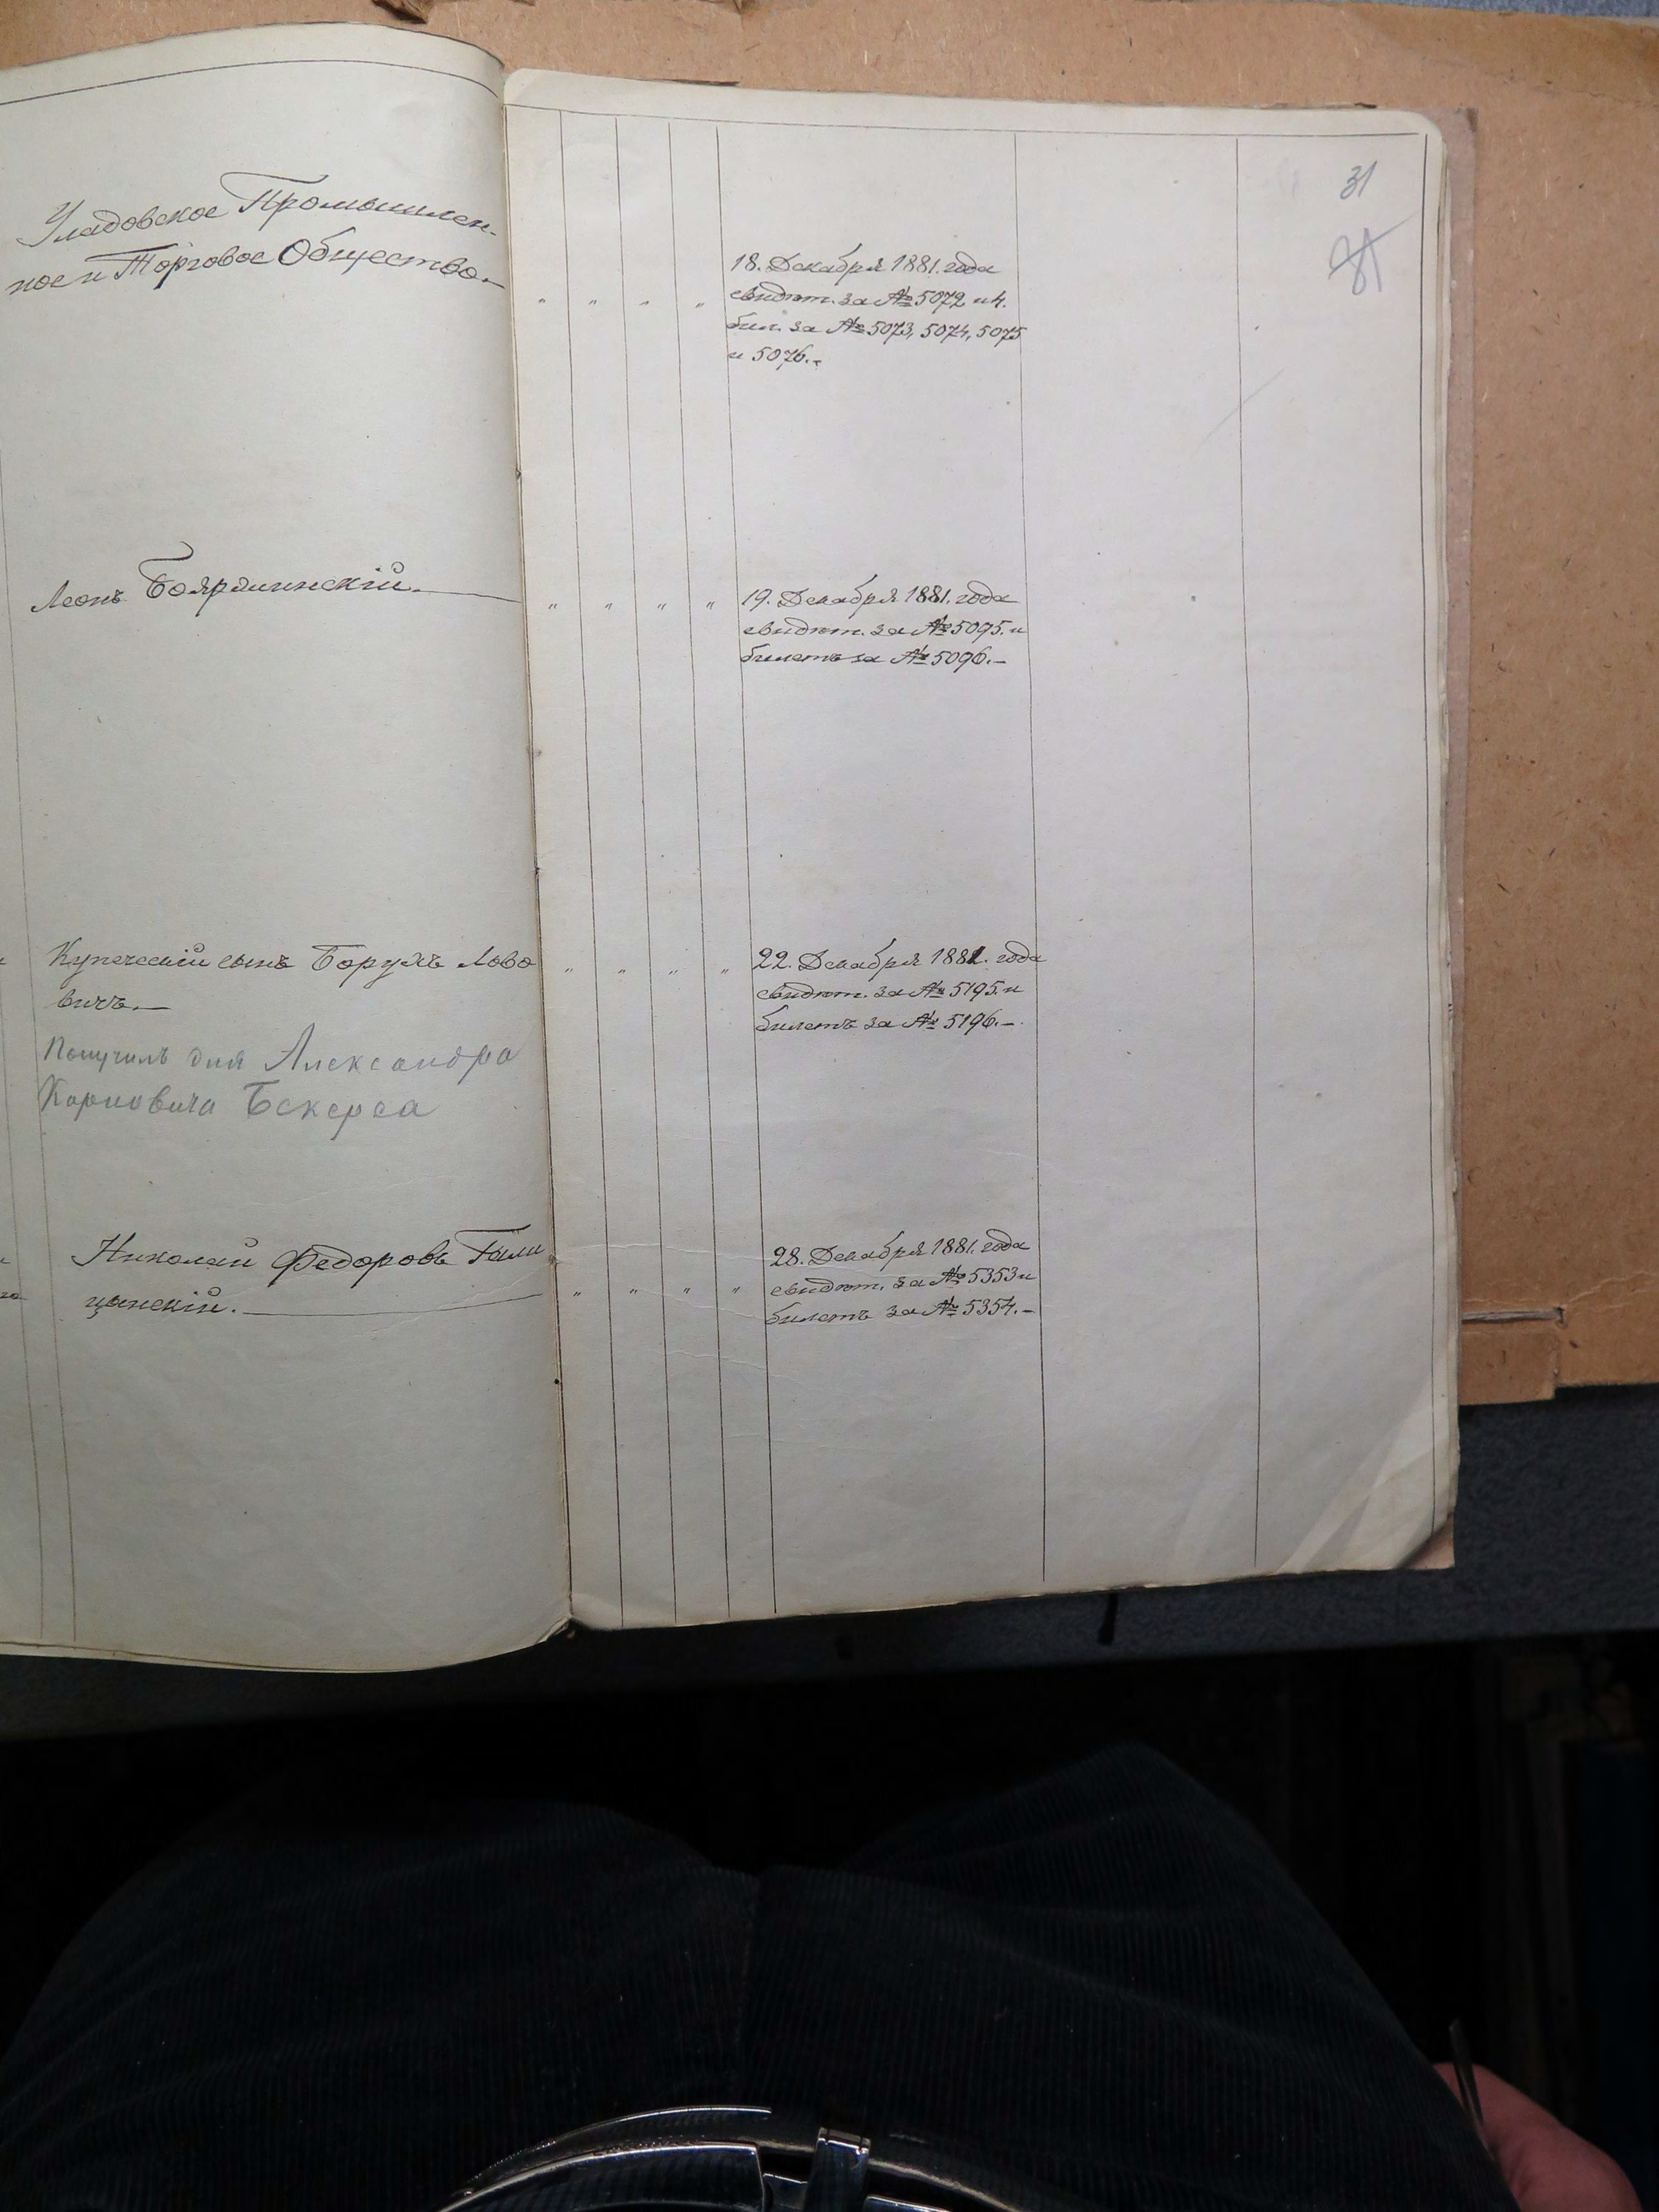 31
31
Уладовское Промышлен-
ное и Торговое Общество.-
" " " "
18. Декабря 1881. года
свидѣт. за № 5072 и 4.
бил. за № 5073, 5074, 5075
и 5076.-
Леонъ Бояржинскій.-
" " " "
19. Декабря 1881. года
свидѣт. за № 5095. и
билетъ за № 5096.-
Купеческій сынъ Борухъ Лово
вичъ.-
" " " "
22. Декабря 1881. года
свидѣт. за № 5195. и
билетъ за № 5196.-
Получилъ для Александра
Карловича Бекерса
Николай Федоровъ Гали
цинскій.-
" " " "
28. Декабря 1881. года
свидѣт. за № 5353 и
билетъ за № 5354.-